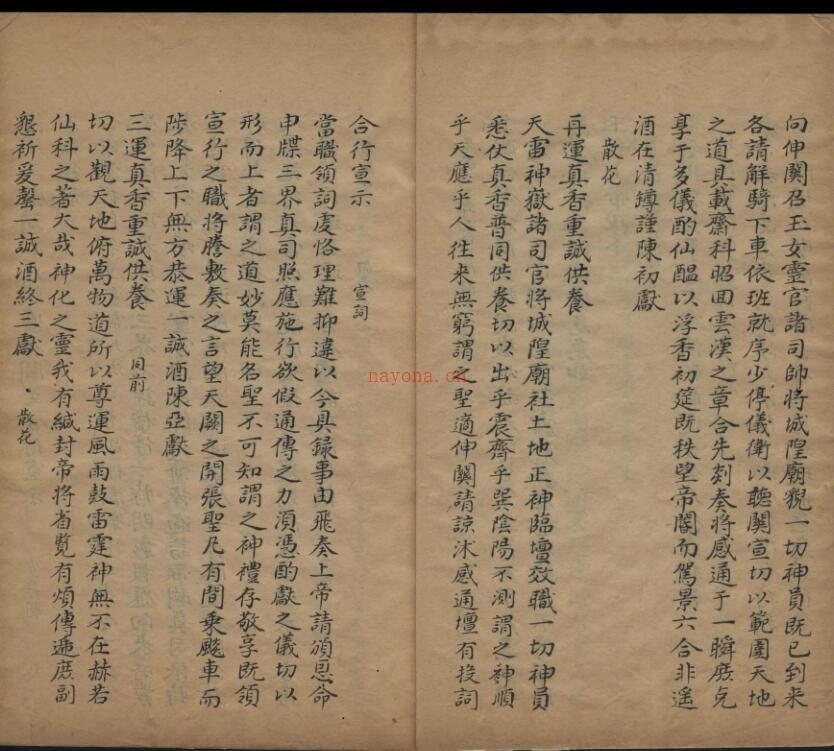 向伸關召玉女靈官諸司帥將城隍廟貎一切神員既已到來
各請解騎下車依班就序少停儀衛以聽關宣切以範圍天地
之道具載齋科昭回雲漢之章合先剡奏將感通于一瞬庶克
享于多儀酌仙醞以浮香初筵既秩望帝閽而駕景六合非遥
酒在清罇謹陳初獻
散花
再運真香重誠供養
天雷神嶽諸司官將城隍廟社土地正神臨壇效職一切神員
悉仗真香普同供養切以出乎震齊乎巽陰陽不測謂之神順
乎天應乎人往來無窮謂之聖適伸關請諒沐感通壇有投詞
合行宣示 宣詞
當職領詞虔恪理難抑違以今具録事由飛奏上帝請頒恩命
申牒三界真司照應施行欲假通傳之力須憑酌獻之儀切以
形而上者謂之道妙莫能名聖不可知謂之神禮存敬享既領
宣行之職將謄敷奏之言望天闕之開張聖凡有間乗飈車而
陟降上下無方恭運一誠酒陳亞獻
三運真香重誠供養 同前
切以觀天地俯萬物道所以尊運風雨鼓雷霆神無不在赫若
仙科之著大哉神化之靈我有緘封帝將省覧有煩傳逓庶副
懇祈爰罄一誠酒終三獻 散花
nayona.cn